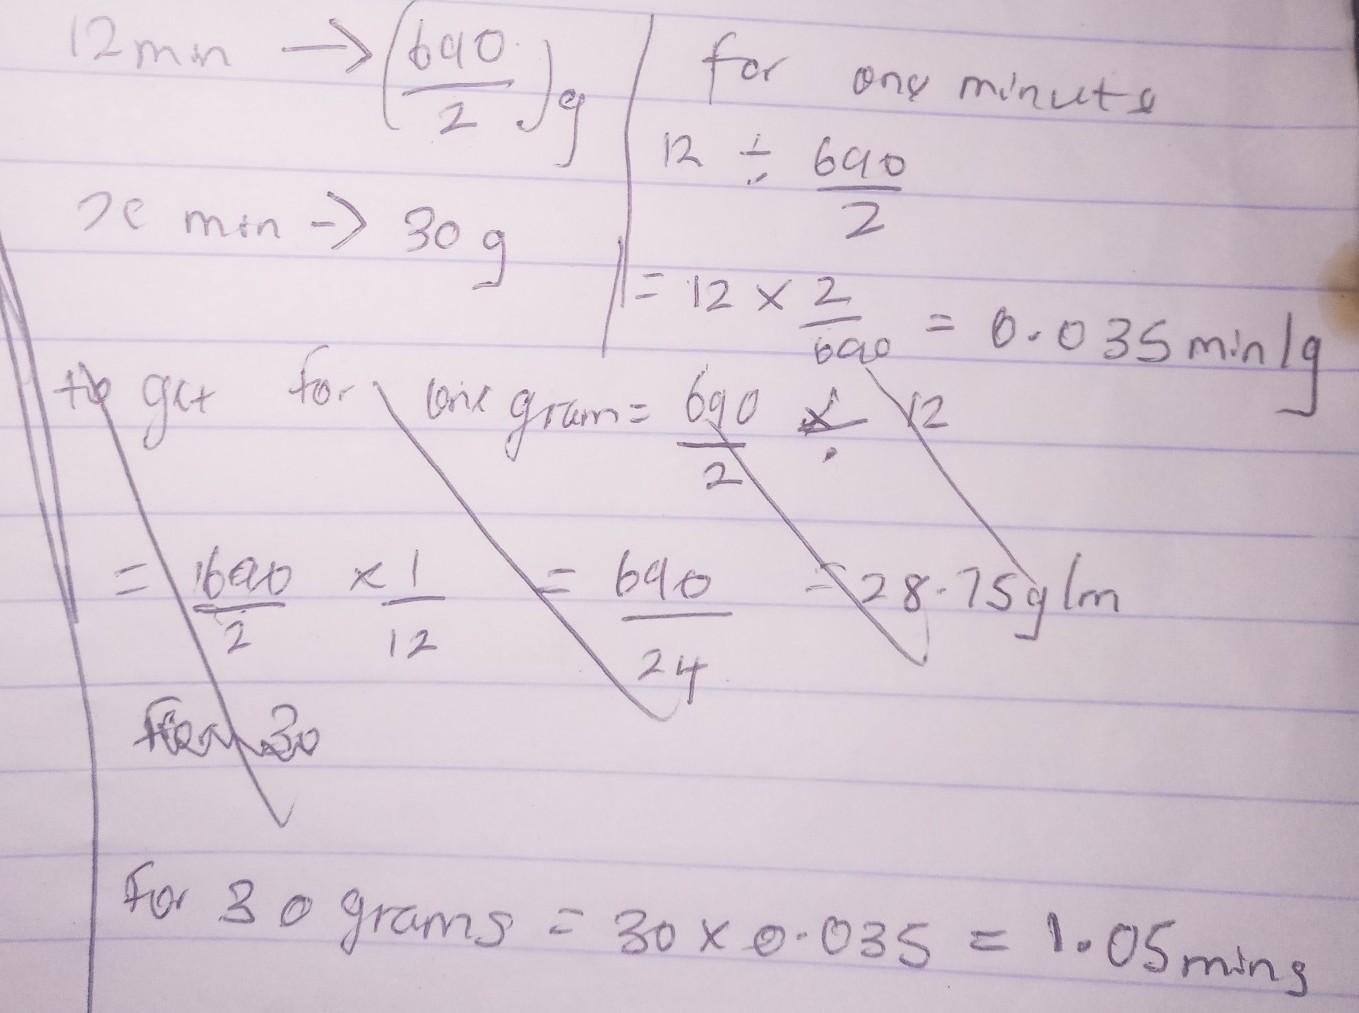 12 min → (690/2) g
x min → 30 g
for one minute
12 ÷ 690/2
= 12 × 2/690 = 0.035 min/g
to get for one gram = 690/2 ÷ 12
= 690/2 × 1/12 = 690/24 = 28.75 g/m
30
For 30 grams = 30 × 0.035 = 1.05 mins